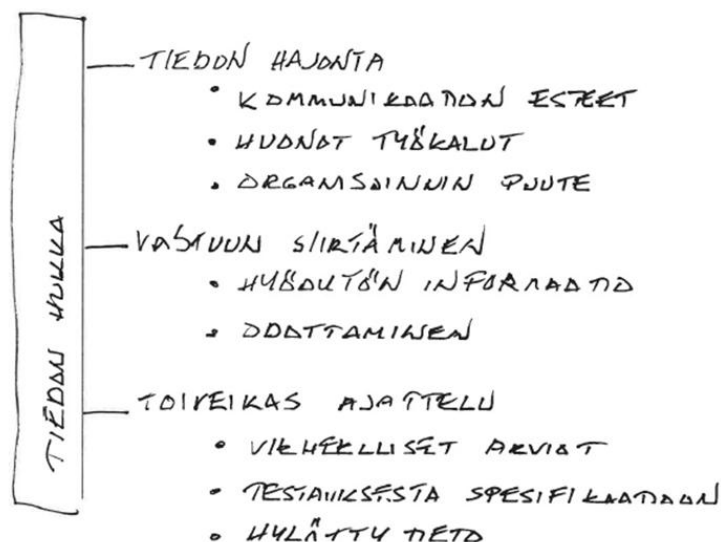 TIEDON HUKKA
TIEDON HAJONTA
• KOMMUNIKAATION ESTEET
• HUONOT TYÖKALUT
• ORGANISOINNIN PUUTE
VASTUUN SIIRTÄMINEN
• HYÖDYTÖN INFORMAATIO
• ODOTTAMINEN
TOIVEIKAS AJATTELU
• VIRHEELLISET ARVIOT
• TESTAUKSESTA SPESIFIKAATIOON
• HYLÄTTY TIETO